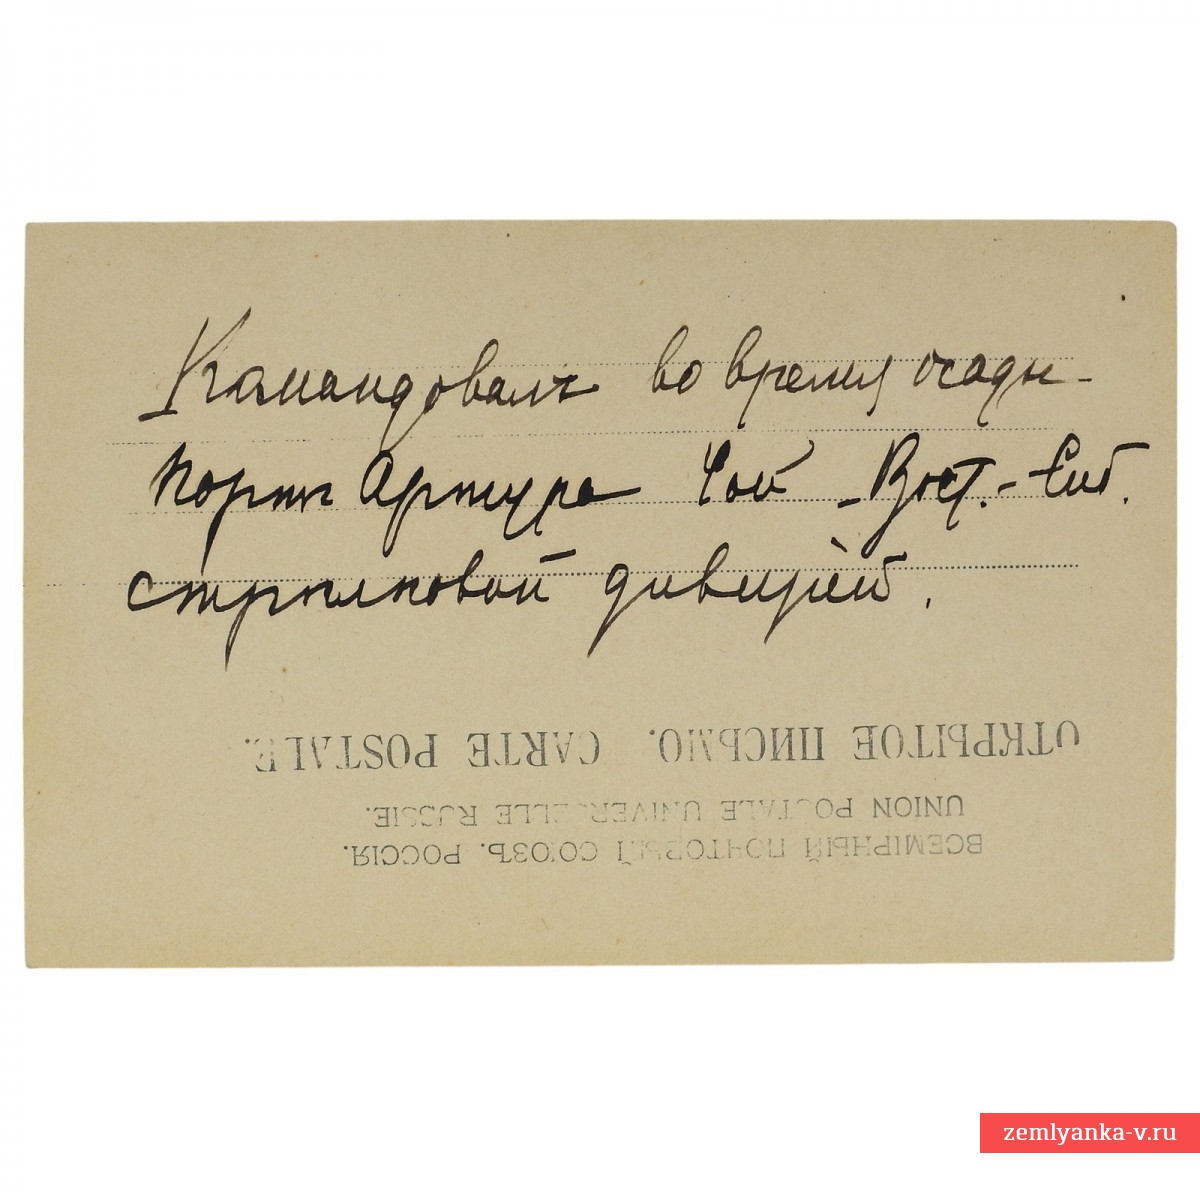 Командовалъ во время осады
Портъ Артура 4ой -Вост.-Сиб.
стрѣлковой дивизіей.
ВСЕМІРНЫЙ ПОЧТОВЫЙ СОЮЗЪ. РОССІЯ.
UNION POSTALE UNIVERSELLE RUSSIE.
ОТКРЫТОЕ ПИСЬМО. CARTE POSTALE.
zemlyanka-v.ru